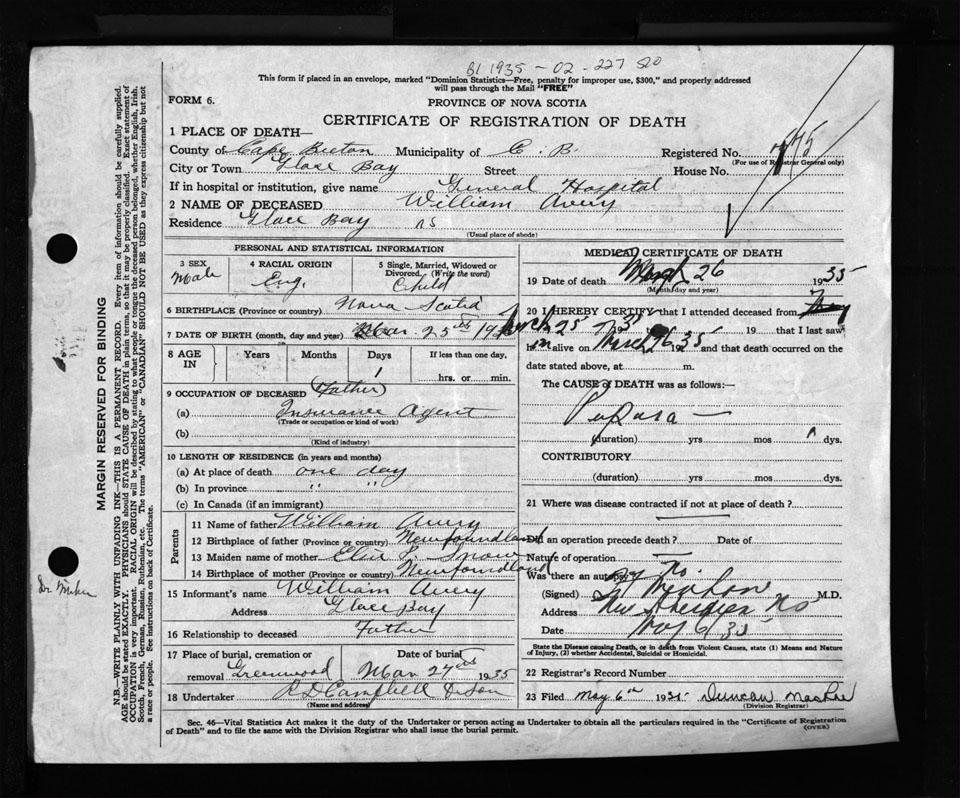 B1 1935 - 02 - 227 520
This form if placed in an envelope, marked "Dominion Statistics—Free, penalty for improper use, $300," and properly addressed
will pass through the Mail "FREE"
FORM 6.
PROVINCE OF NOVA SCOTIA
CERTIFICATE OF REGISTRATION OF DEATH
1 PLACE OF DEATH—
County of Cape Breton Municipality of C. B. Registered No.
(For use of Registrar General only)
City or Town Glace Bay Street House No.
If in hospital or institution, give name General Hospital
2 NAME OF DECEASED William Avery
Residence Glace Bay NS
(Usual place of abode)
PERSONAL AND STATISTICAL INFORMATION
3 SEX
Male
4 RACIAL ORIGIN
Eng.
5 Single, Married, Widowed or
Divorced. (Write the word)
Child
6 BIRTHPLACE (Province or country) Nova Scotia
7 DATE OF BIRTH (month, day and year) Mar 25th 193
8 AGE
IN
Years
Months
Days
1
If less than one day,
hrs. or min.
9 OCCUPATION OF DECEASED (Father)
(a) Insurance Agent
(Trade or occupation or kind of work)
(b)
(Kind of industry)
10 LENGTH OF RESIDENCE (in years and months)
(a) At place of death one day
(b) In province " "
(c) In Canada (if an immigrant)
Parents
11 Name of father William Avery
12 Birthplace of father (Province or country) Newfoundland
13 Maiden name of mother Snow
14 Birthplace of mother (Province or country) Newfoundland
15 Informant's name William Avery
Address Glace Bay
16 Relationship to deceased Father
17 Place of burial, cremation or
removal Greenwood
Date of burial
Mar 27th 1935
18 Undertaker Campbell & Son
(Name and address)
MEDICAL CERTIFICATE OF DEATH
19 Date of death March 26 1935
(Month, day and year)
20 I HEREBY CERTIFY that I attended deceased from
March 25 19 that I last saw
him alive on March 26 1935 and that death occurred on the
date stated above, at m.
The CAUSE of DEATH was as follows:
(duration) yrs mos dys.
CONTRIBUTORY
(duration) yrs mos dys.
21 Where was disease contracted if not at place of death?
Did an operation precede death? Date of
Nature of operation
Was there an autopsy? No.
(Signed) M.D.
Address New Aberdeen NS
Date May 6 35
State the Disease causing Death, or in death from Violent Causes, state (1) Means and Nature
of Injury, (2) whether Accidental, Suicidal or Homicidal.
22 Registrar's Record Number
23 Filed May 6th 1935 Duncan MacRae
(Division Registrar)
Sec. 46—Vital Statistics Act makes it the duty of the Undertaker or person acting as Undertaker to obtain all the particulars required in the "Certificate of Registration
of Death" and to file the same with the Division Registrar who shall issue the burial permit.
(OVER)
MARGIN RESERVED FOR BINDING
N.B.—WRITE PLAINLY WITH UNFADING INK—THIS IS A PERMANENT RECORD. Every item of information should be carefully supplied.
AGE should be stated EXACTLY. PHYSICIANS should STATE CAUSE OF DEATH in plain terms, so that it may be properly classified. Exact statement of
OCCUPATION is very important. RACIAL ORIGIN will be described by stating to what people or tongue the deceased person belonged, whether English, Irish,
Scotch, French, German, Russian, Ruthenian, etc. The terms "AMERICAN" or "CANADIAN" SHOULD NOT BE USED as they express citizenship but not
a race or people. See instructions on back of Certificate.